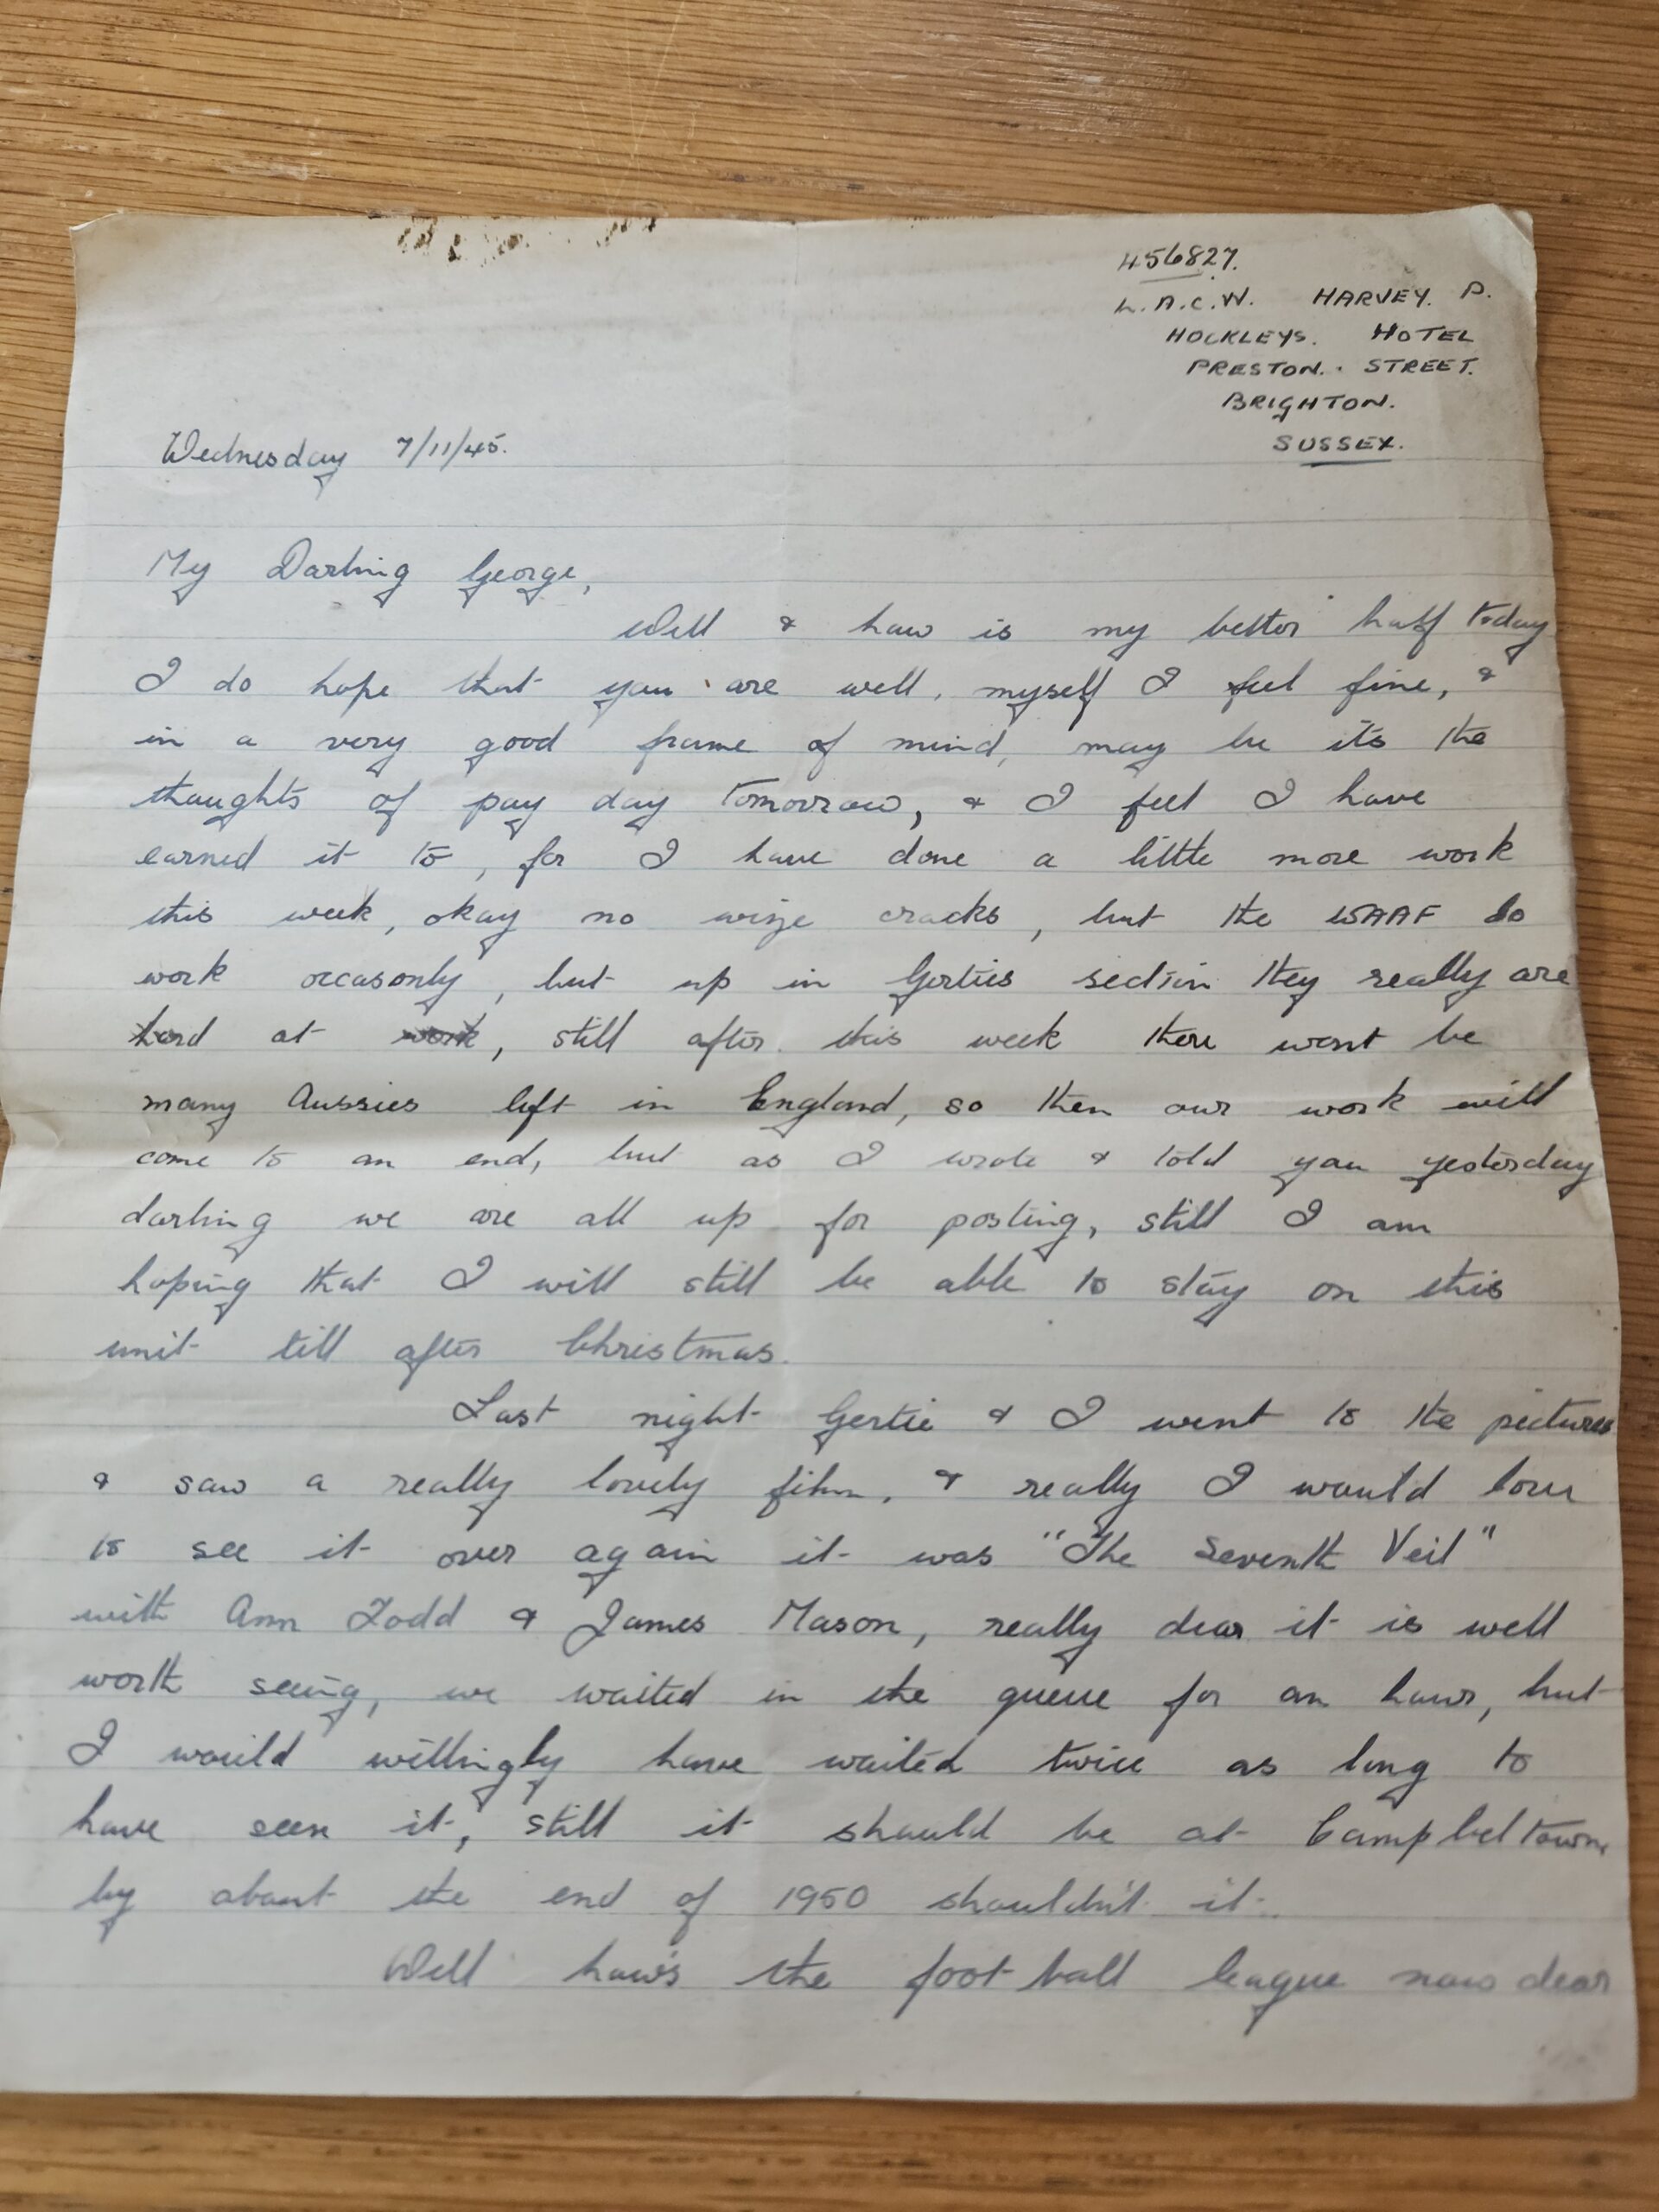 456827.
L.A.C.W. HARVEY. P.
HOCKLEYS. HOTEL
PRESTON. STREET.
BRIGHTON.
SUSSEX.
Wednesday 7/11/45.
My Darling George,
Well & how is my better half today
I do hope that you are well, myself I feel fine, &
in a very good frame of mind, may be its the
thoughts of pay day tomorrow, & I feel I have
earned it to, for I have done a little more work
this week, okay no wise cracks, but the WAAF do
work occasonly, but up in Gerties section they really are
hard at work, still after this week there wont be
many Aussies left in England, so then our work will
come to an end, but as I wrote & told you yesterday
darling we are all up for posting, still I am
hoping that I will still be able to stay on this
unit till after Christmas.
Last night Gertie & I went to the pictures
& saw a really lovely film, & really I would love
to see it over again it was "The Seventh Veil"
with Ann Todd & James Mason, really dear it is well
worth seeing, we waited in the queue for an hour, but
I would willingly have waited twice as long to
have seen it, still it should be at Campbeltown
by about the end of 1950 shouldn't it.
Well how's the foot ball league now dear